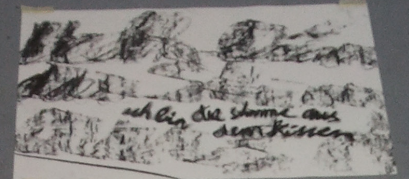 ich bin die stimme aus
dem Kissen